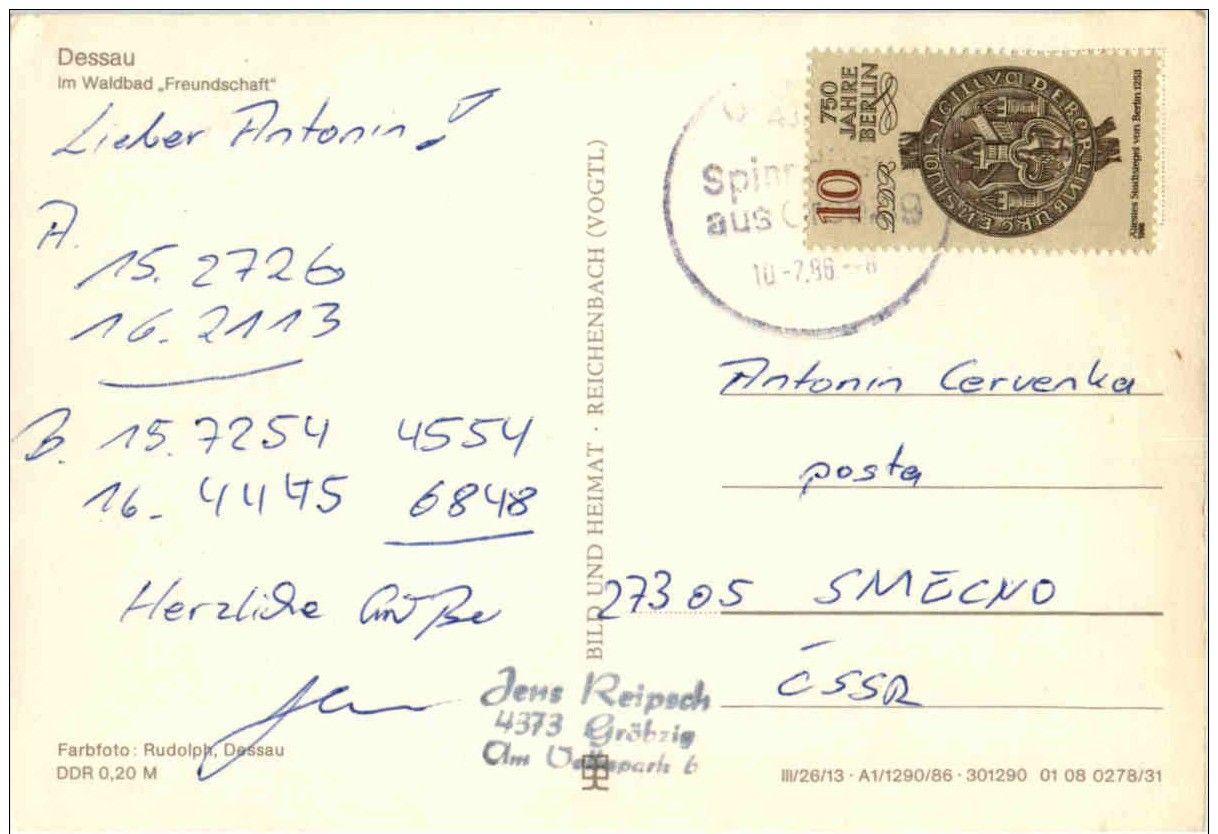 Dessau
Im Waldbad „Freundschaft“
Lieber Antonin!
A.
15. 2726
16. 2113
B. 15. 7254 4554
16. 4445 6848
Herzliche Grüße
Farbfoto: Rudolph, Dessau
DDR 0,20 M
BILD UND HEIMAT · REICHENBACH (VOGTL)
Jens Reipsch
4373 Gröbzig
Am Volkspark 6
aus
10.-7.86-8
10
750
JAHRE
BERLIN
DDR
SIGILLVM
Ältestes Stadtsiegel von Berlin 1253
1986
Antonin Cervenka
posta
27305 SMECNO
ČSSR
III/26/13 · A1/1290/86 · 301290 01 08 0278/31